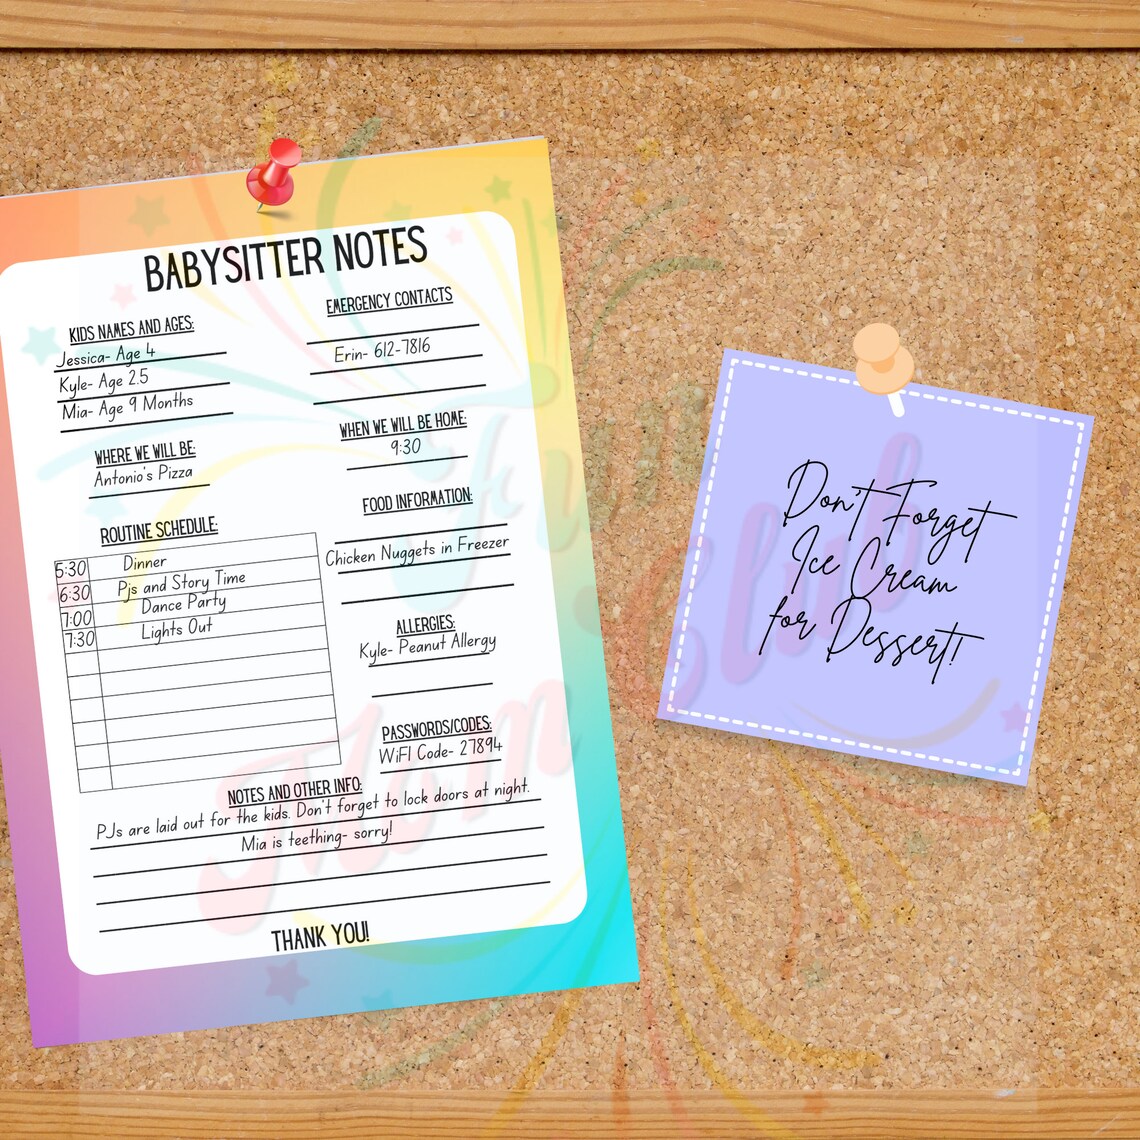 BABYSITTER NOTES
KIDS NAMES AND AGES:
Jessica- Age 4
Kyle- Age 2.5
Mia- Age 9 Months
WHERE WE WILL BE:
Antonio's Pizza
ROUTINE SCHEDULE:
5:30 Dinner
6:30 Pjs and Story Time
7:00 Dance Party
7:30 Lights Out
EMERGENCY CONTACTS
Erin- 612-7816
WHEN WE WILL BE HOME:
9:30
FOOD INFORMATION:
Chicken Nuggets in Freezer
ALLERGIES:
Kyle- Peanut Allergy
PASSWORDS/CODES:
WiFI Code- 27894
NOTES AND OTHER INFO:
PJs are laid out for the kids. Don't forget to lock doors at night.
Mia is teething- sorry!
THANK YOU!
Don't Forget
Ice Cream
for Dessert!
Fun
Mom Club